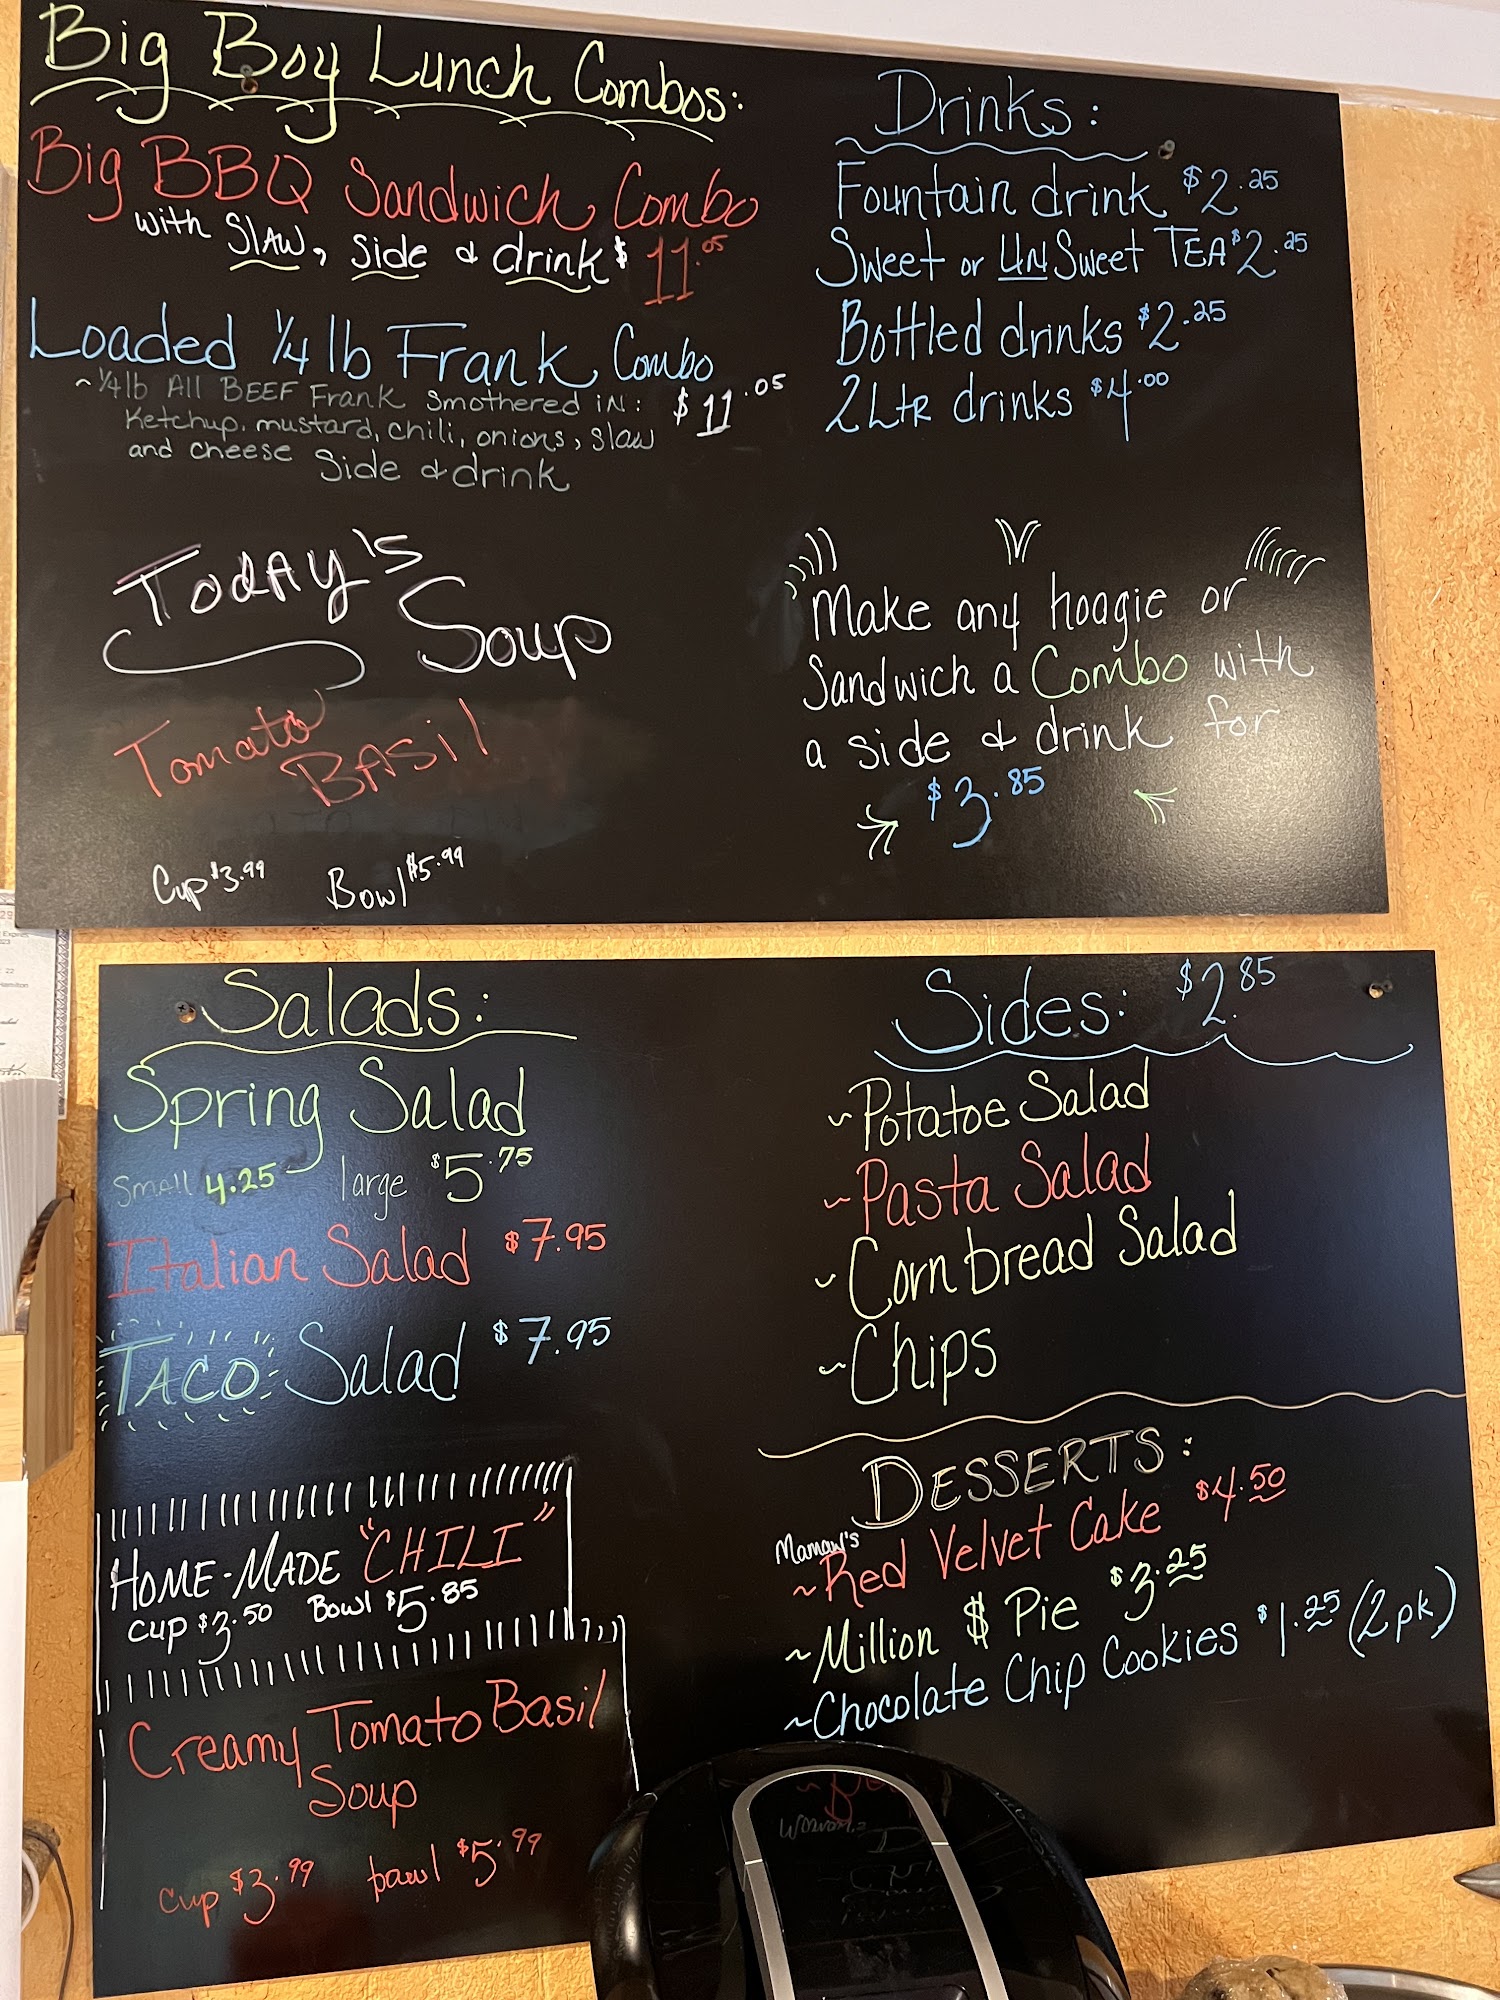 Big Boy Lunch Combos:
Big BBQ Sandwich Combo
with SLAW, Side & drink $11.05
Loaded 1/4 lb Frank Combo
~1/4 lb All BEEF Frank Smothered in: $11.05
Ketchup, mustard, chili, onions, slaw
and cheese Side & drink
Today's
Soup
Tomato
BASil
Cup $3.99 Bowl $5.99
Drinks:
Fountain drink $2.25
Sweet or UNSweet TEA $2.25
Bottled drinks $2.25
2LtR drinks $4.00
Make any hoagie or
Sandwich a Combo with
a side & drink for
$3.85
Salads:
Spring Salad
Small 4.25 large $5.75
Italian Salad $7.95
TACO Salad $7.95
HOME-MADE "CHILI"
Cup $3.50 Bowl $5.85
Creamy Tomato Basil
Soup
Cup $3.99 bowl $5.99
Sides: $2.85
~Potatoe Salad
~Pasta Salad
~Corn bread Salad
~Chips
DESSERTS:
Mamaw's
~Red Velvet Cake $4.50
~Million $ Pie $3.25
~Chocolate Chip Cookies $1.25 (2pk)